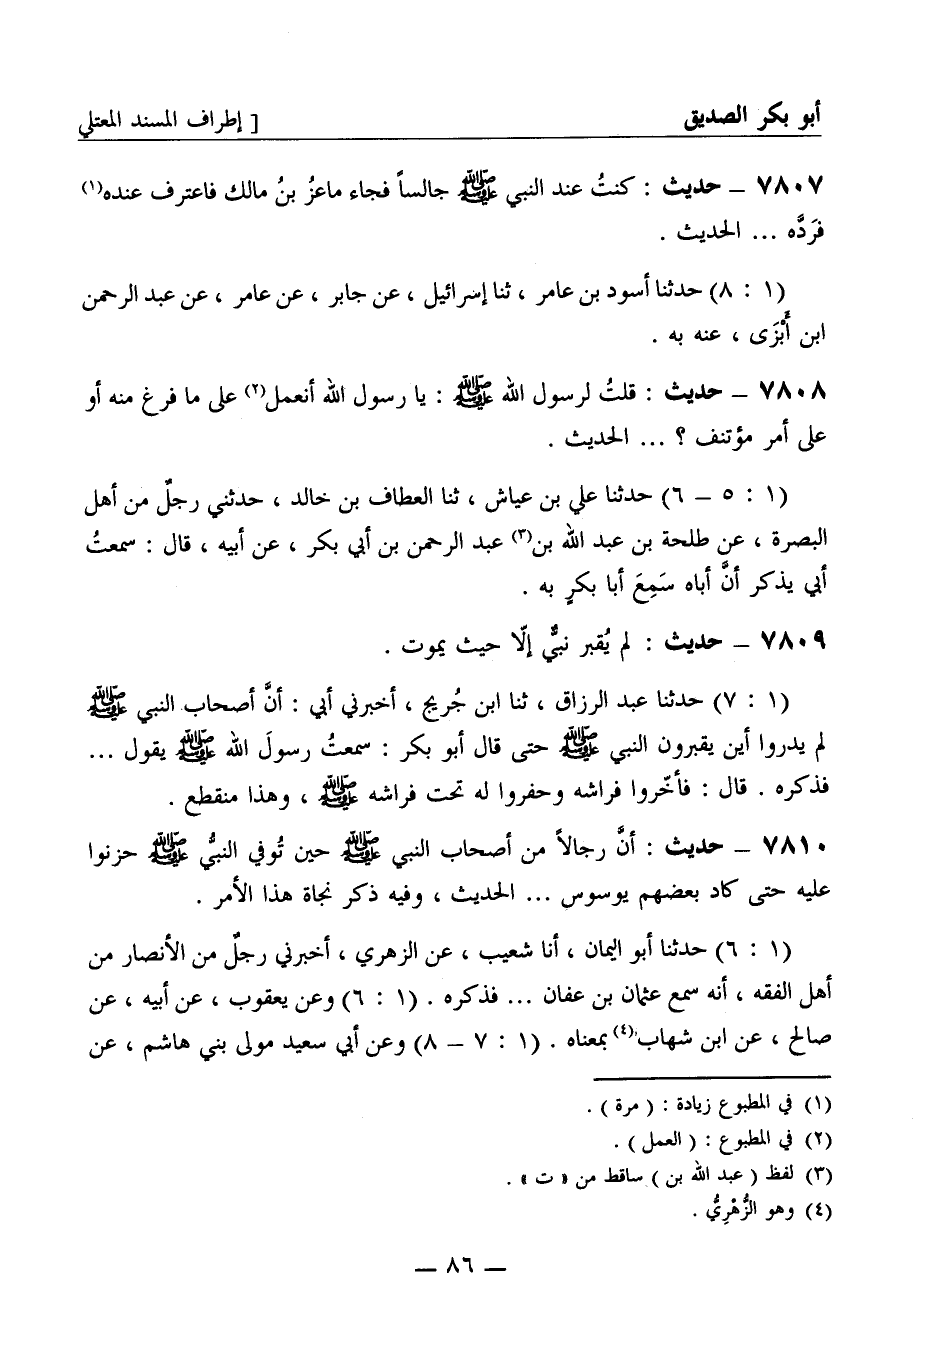 أبو بكر الصديق
[ إطراف المسند المعتلي
٧٨٠٧ – حديث : كنتُ عند النبي ﷺ جالساً فجاء ماعزُ بنُ مالك فاعترف عنده(١)
فرَدَّه ... الحديث .
(١ : ٨) حدثنا أسود بن عامر ، ثنا إسرائيل ، عن جابر ، عن عامر ، عن عبد الرحمن
ابن أَبْزَى ، عنه به .
٧٨٠٨ – حديث : قلتُ لرسول الله ﷺ : يا رسول الله أنعمل(٢) على ما فرغ منه أو
على أمر مؤتنف ؟ ... الحديث .
(١ : ٥ – ٦) حدثنا علي بن عياش ، ثنا العطاف بن خالد ، حدثني رجلٌ من أهل
البصرة ، عن طلحة بن عبد الله بن(٣) عبد الرحمن بن أبي بكر ، عن أبيه ، قال : سمعتُ
أبي يذكر أنَّ أباه سَمِعَ أبا بكرٍ به .
٧٨٠٩ – حديث : لم يُقبر نبيٌّ إلّا حيث يموت .
(١ : ٧) حدثنا عبد الرزاق ، ثنا ابن جُريج ، أخبرني أبي : أنَّ أصحاب النبي ﷺ
لم يدروا أين يقبرون النبي ﷺ حتى قال أبو بكر : سمعتُ رسولَ الله ﷺ يقول ...
فذكره . قال : فأخّروا فراشه وحفروا له تحت فراشه ﷺ ، وهذا منقطع .
٧٨١٠ – حديث : أنَّ رجالاً من أصحاب النبي ﷺ حين تُوفي النبيُّ ﷺ حزنوا
عليه حتى كاد بعضهم يوسوس ... الحديث ، وفيه ذكر نجاة هذا الأمر .
(١ : ٦) حدثنا أبو اليمان ، أنا شعيب ، عن الزهري ، أخبرني رجلٌ من الأنصار من
أهل الفقه ، أنه سمع عثمان بن عفان ... فذكره . (١ : ٦) وعن يعقوب ، عن أبيه ، عن
صالح ، عن ابن شهاب(٤) بمعناه . (١ : ٧ – ٨) وعن أبي سعيد مولى بني هاشم ، عن
(١) في المطبوع زيادة : ( مرة ) .
(٢) في المطبوع : ( العمل ) .
(٣) لفظ ( عبد الله بن ) ساقط من « ت » .
(٤) وهو الزُّهْرِيُّ .
— ٨٦ —